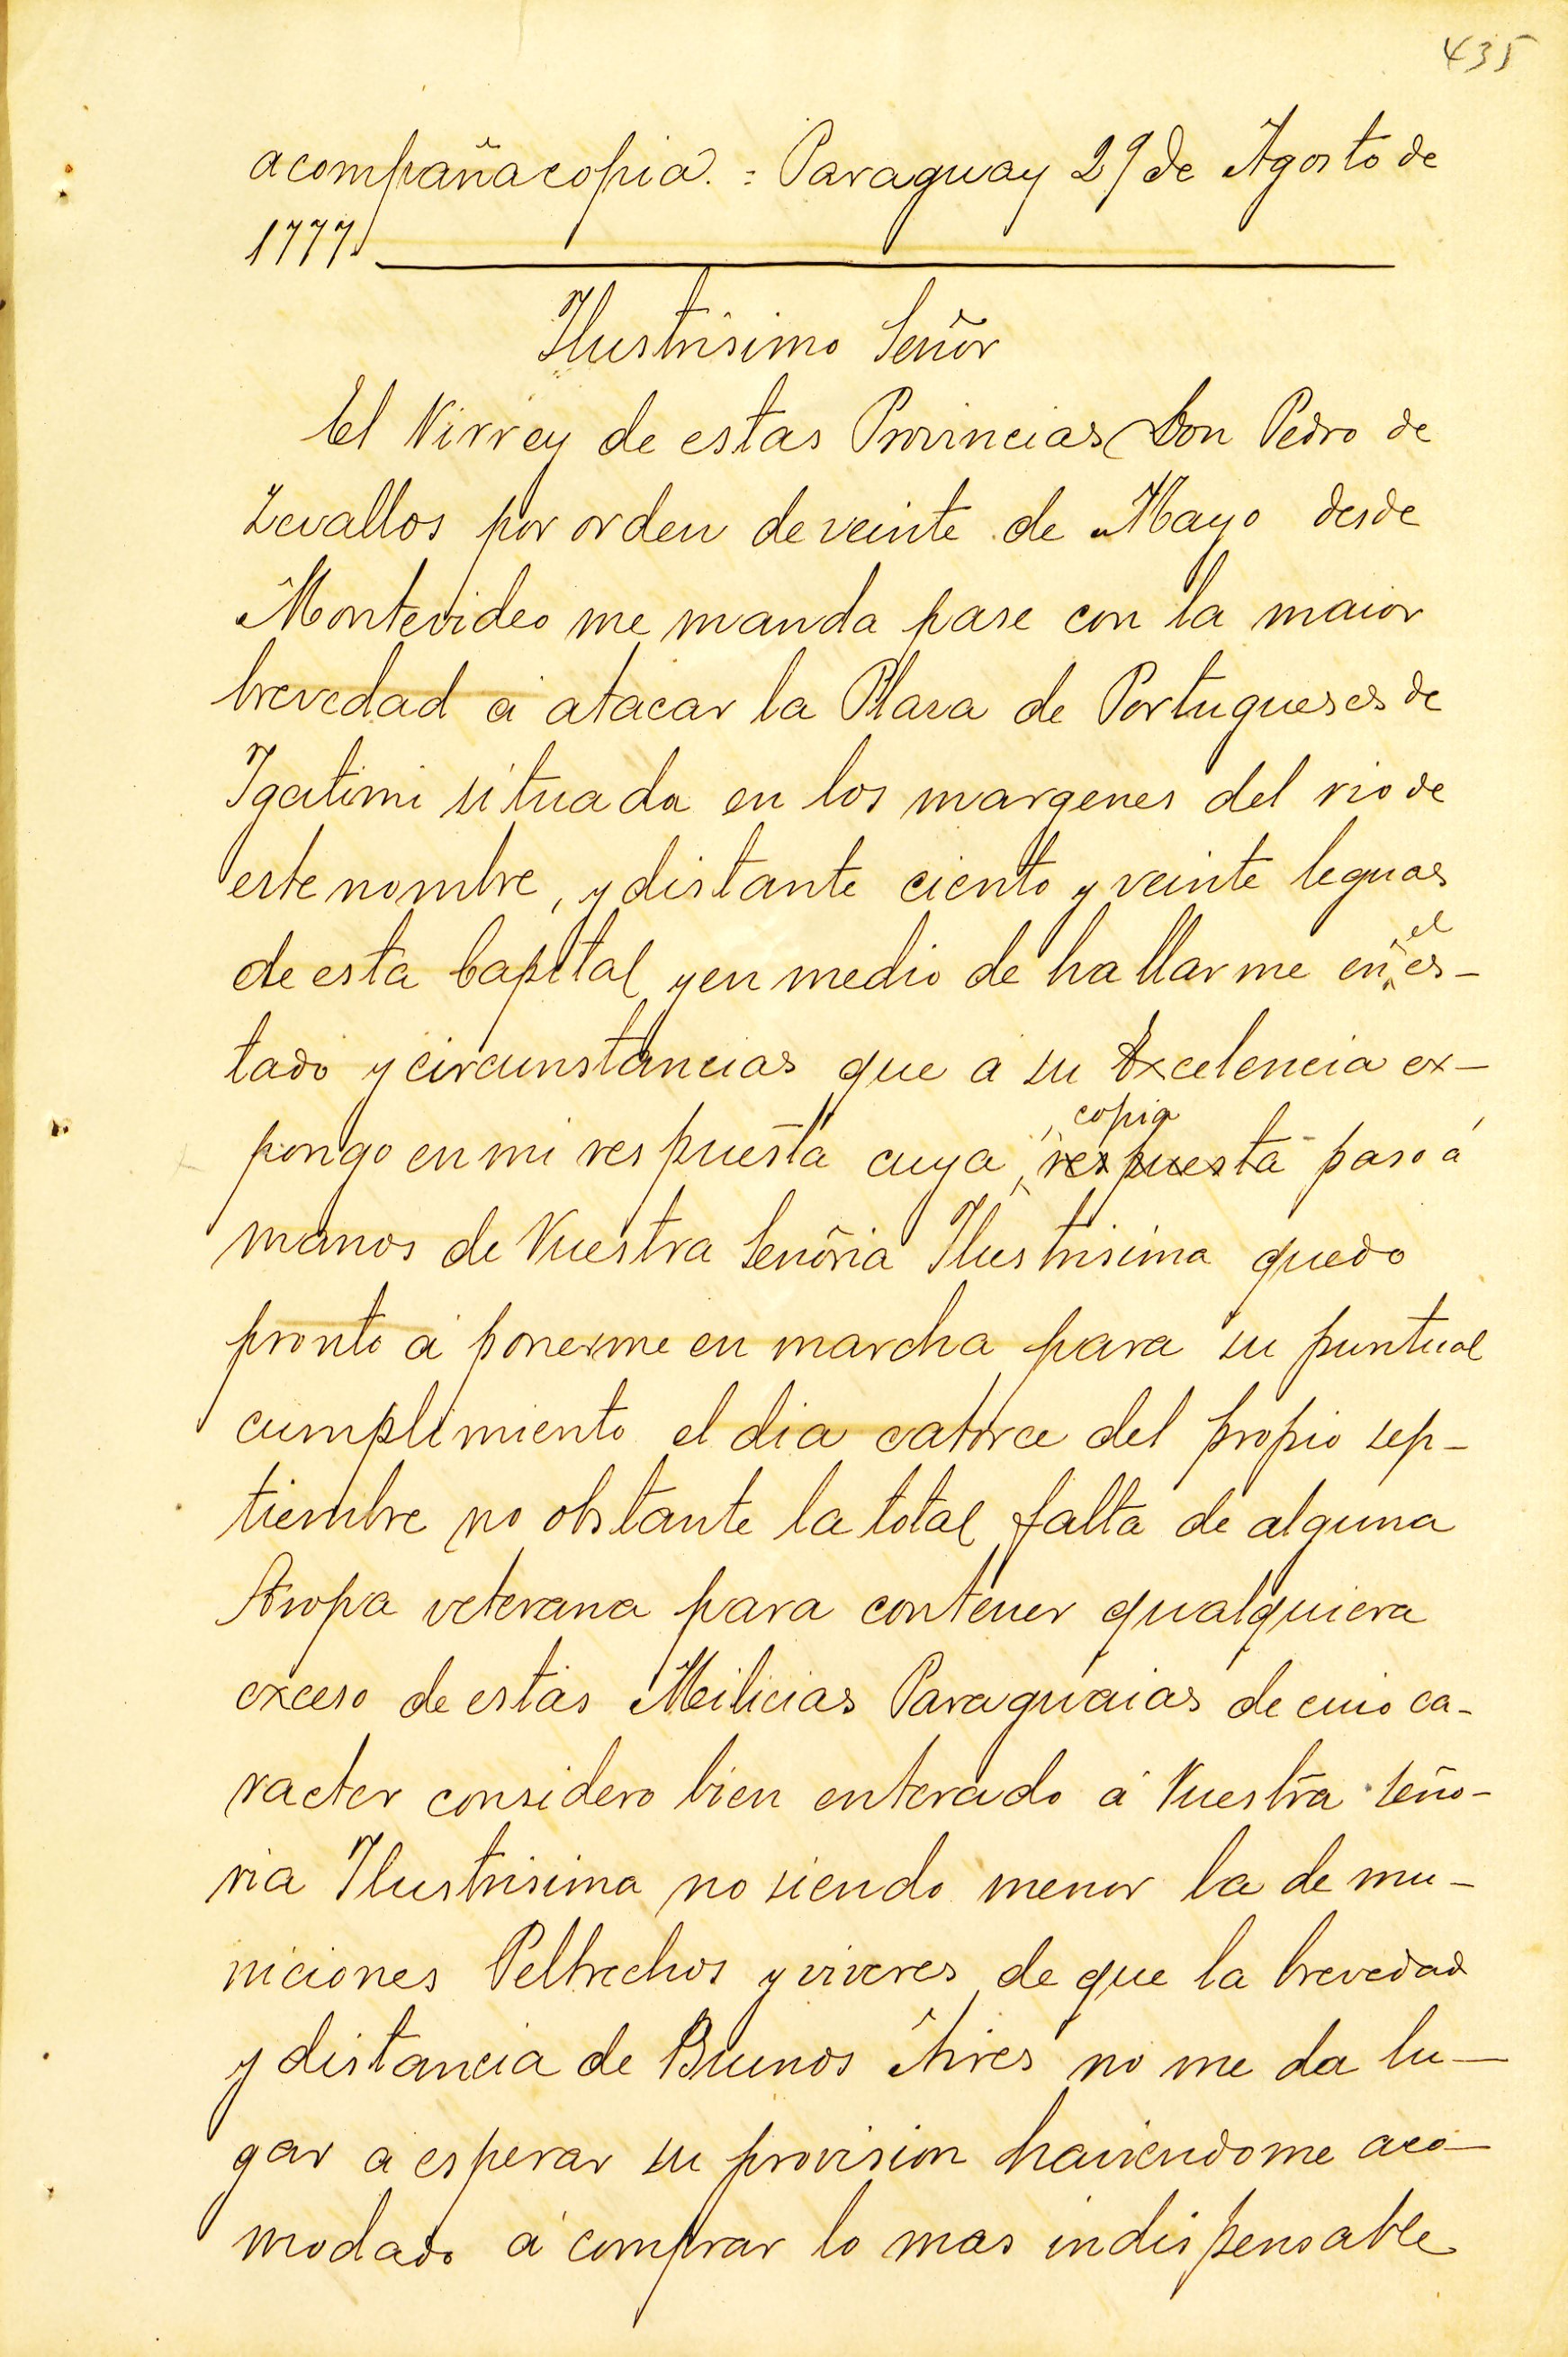 435
acompaña copia. = Paraguay 29 de Agosto de
1777
Ilustrisimo Señor
El Virrey de estas Provincias Don Pedro de
Zevallos por orden de veinte de Mayo desde
Montevideo me manda pase con la maior
brevedad á atacar la Plaza de Portugueses de
Igatimi situada en los margenes del rio de
este nombre, y distante ciento y veinte leguas
de esta Capital y en medio de hallarme en el es-
tado y circunstancias que a su Excelencia ex-
pongo en mi respuesta cuya copia respuesta paso á
manos de Vuestra Señoria Ilustrisima quedo
pronto á ponerme en marcha para su puntual
cumplimiento el dia catorce del propio sep-
tiembre no obstante la total falta de alguna
tropa veterana para contener qualquiera
exceso de estas Milicias Paraguaias de cuio ca-
racter considero bien enterado á Vuestra Seño-
ria Ilustrisima no siendo menor la de mu-
niciones Peltrechos y viveres de que la brevedad
y distancia de Buenos Aires no me da lu-
gar a esperar su provision haviendome aco-
modado á comprar lo mas indispensable